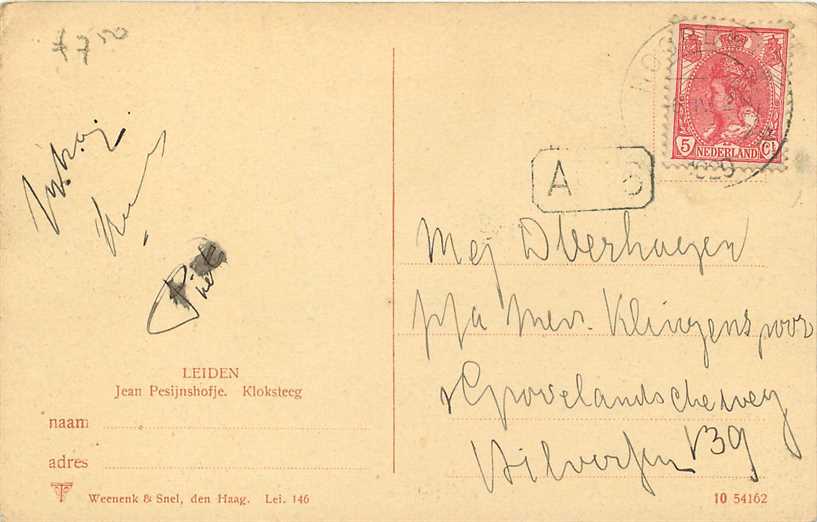 Piet
LEIDEN
Jean Pesijnshofje. Kloksteeg
naam
adres
Weenenk & Snel, den Haag. Lei. 146
5 Ct
NEDERLAND
A
Mej D Verhaegen
p/a Mevr. Klingenspoor
's Gravelandscheweg
Hilversum 139
10 54162